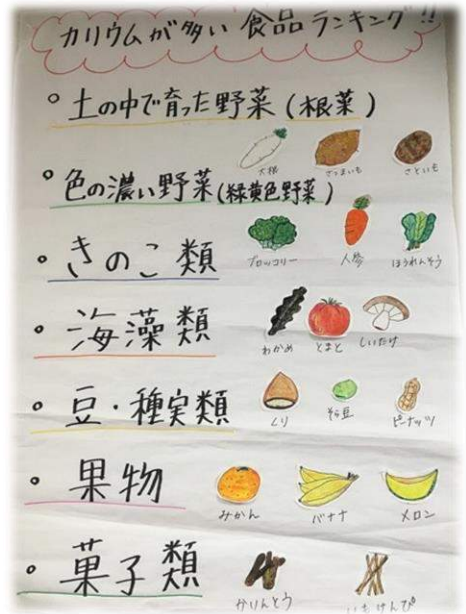 カリウムが多い食品ランキング!!
○ 土の中で育った野菜(根菜)
大根 さつまいも さといも
○ 色の濃い野菜(緑黄色野菜)
ブロッコリー 人参 ほうれんそう
○ きのこ類
○ 海藻類
わかめ とまと しいたけ
○ 豆・種実類
くり そら豆 ピーナッツ
○ 果物
みかん バナナ メロン
○ 菓子類
かりんとう いもけんぴ